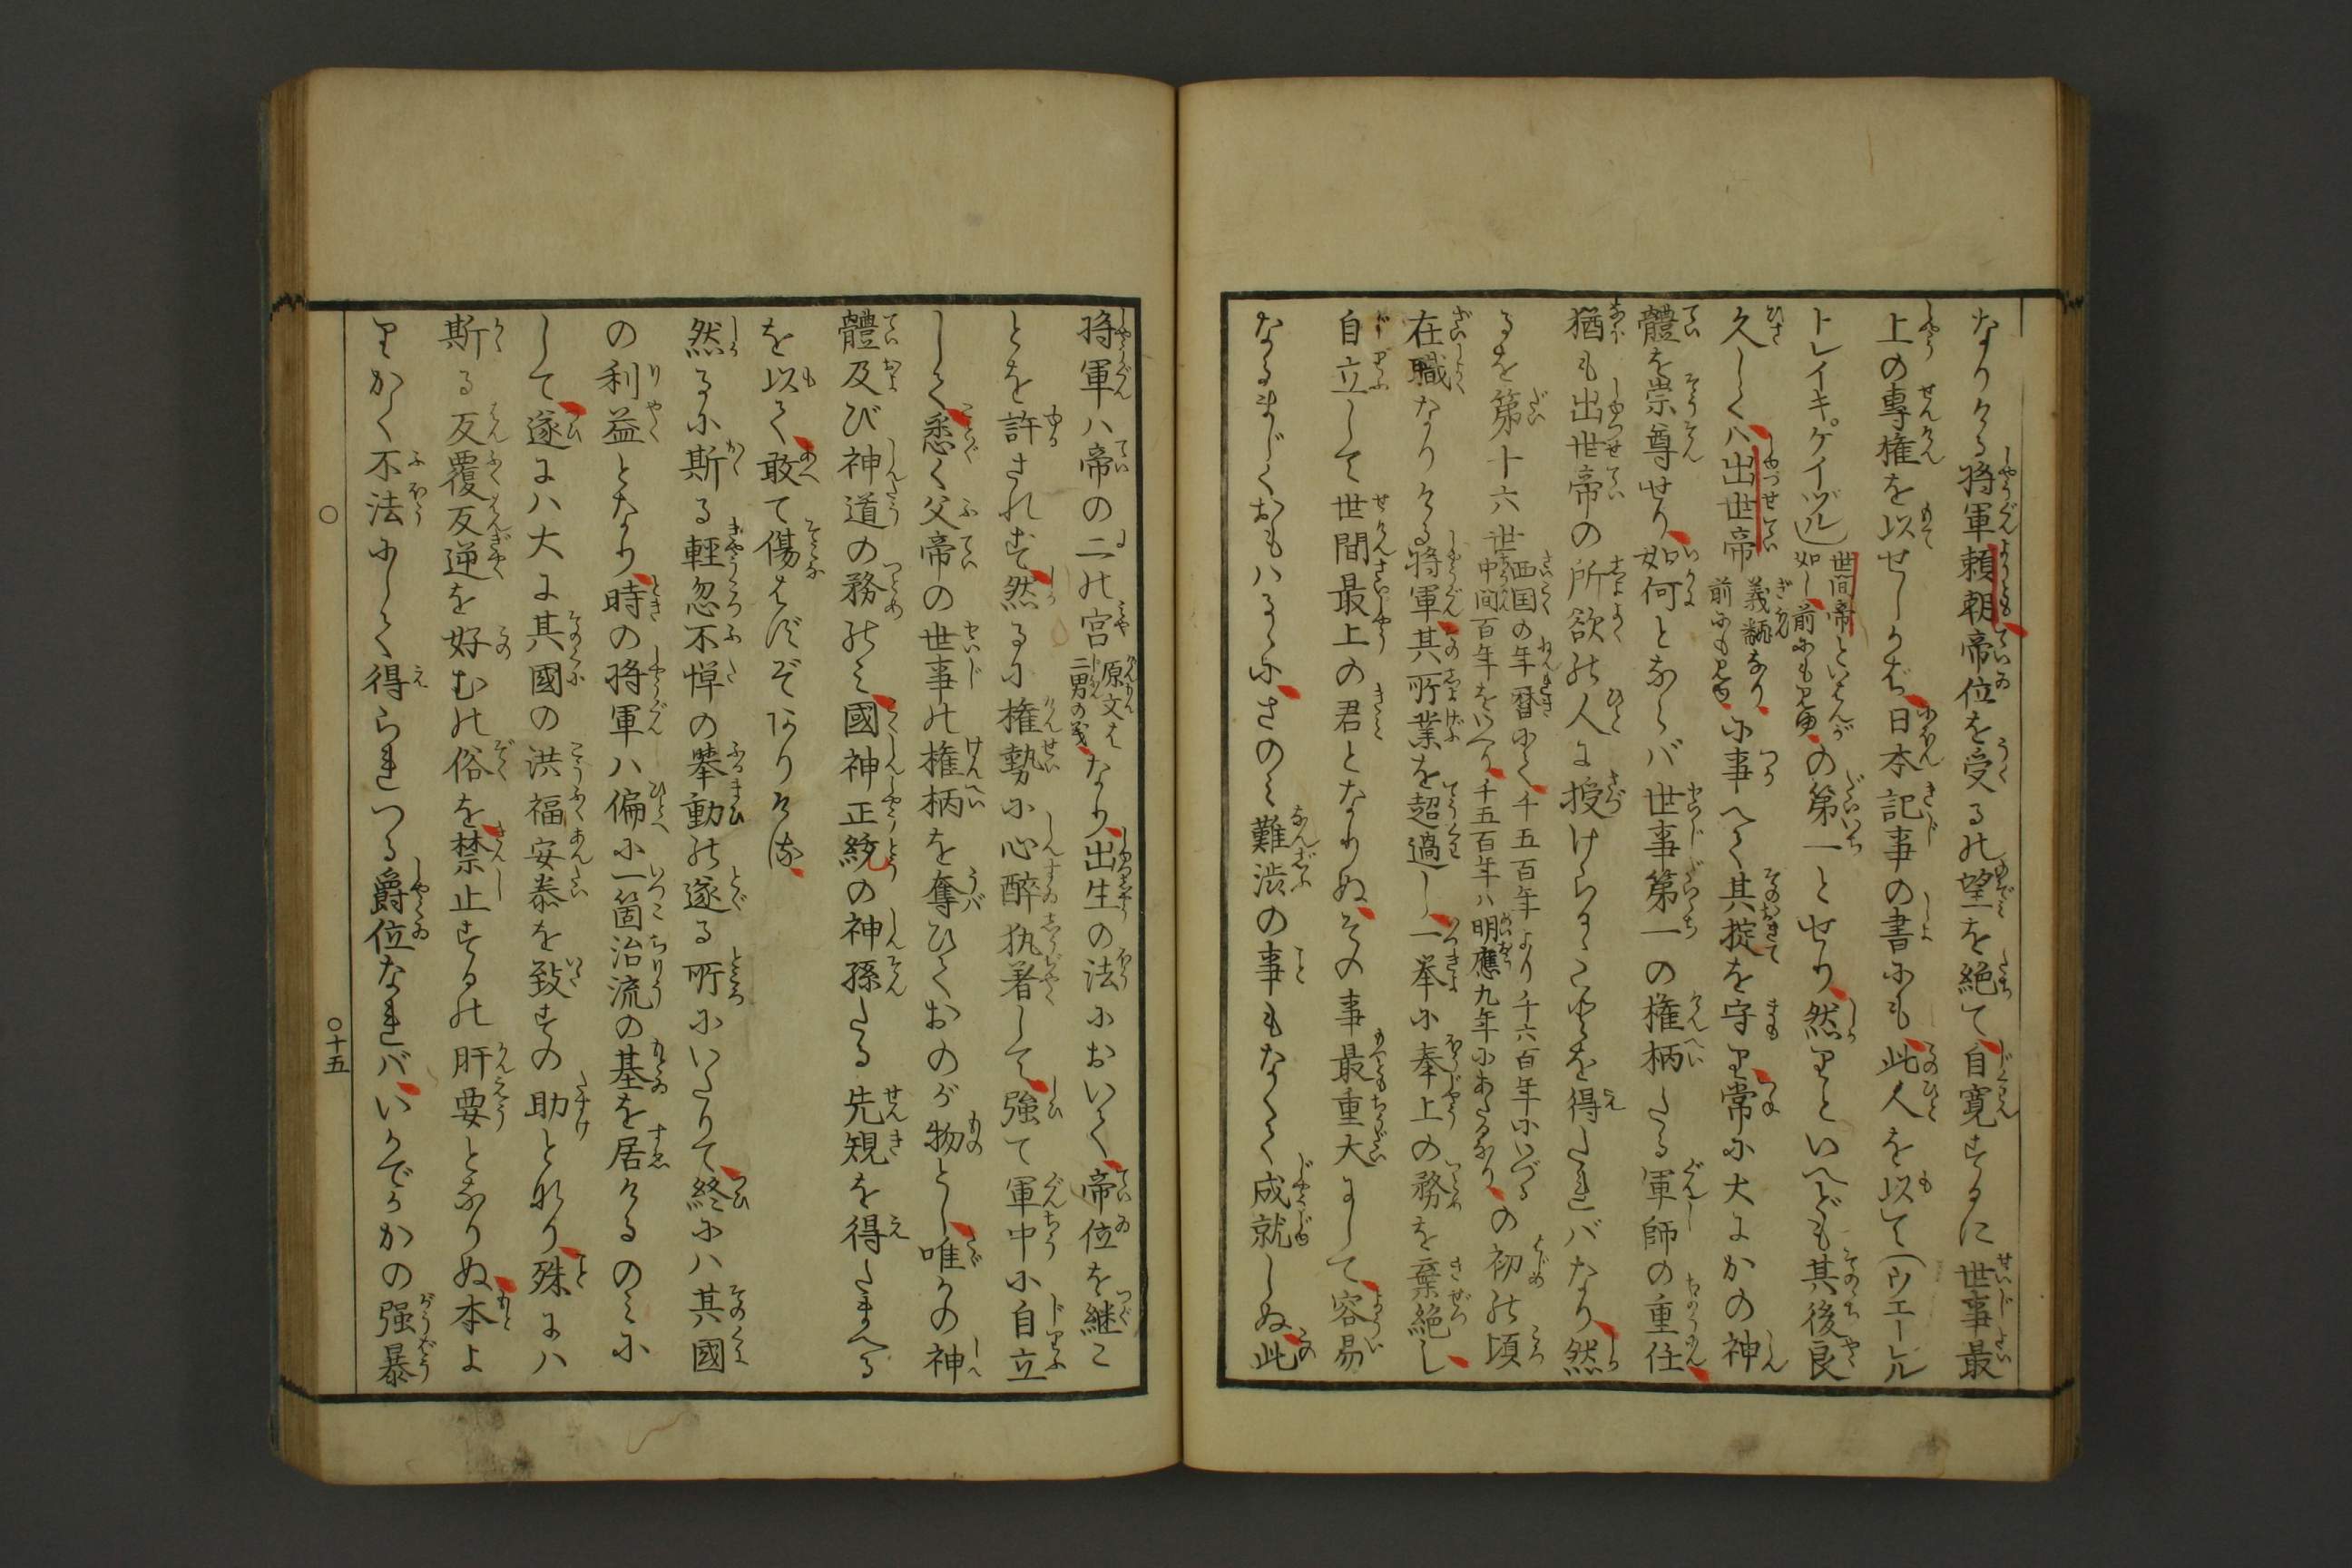 なりける将軍頼朝帝位を受るの望を絶て自寛するに世事最
上の専権を以せしかば日本記事の書にも此人を以て（ウエーレル
トレイキ。ケイヅル）世間帝といはんが
如し前にも見ゆの第一とせり然りといへども其後良
久しくハ出世帝義翻なり
前にも見ゆに事へて其掟を守り常に大にかの神
體を崇尊せり如何とならバ世事第一の権柄たる軍師の重任
猶も出世帝の所欲の人に授けらるゝことを得たれバなり然
るを第十六世西国の年暦にて千五百年より千六百年にいづる
中間百年をいへり千五百年ハ明應九年にあたるなりの初の頃
在職なりける将軍其所業を超過し一挙に奉上の務を棄絶し
自立して世間最上の君となりぬその事最重大にして容易
なるまじくおもハるゝにさのミ難渋の事もなくて成就しぬ此
将軍ハ帝の二の宮原文は
二男の義なり出生の法において帝位を継こ
とを許されず然るに権勢に心醉執着して強て軍中に自立
しく悉く父帝の世事の権柄を奪ひておのが物とし唯かの神
體及び神道の務のミ國神正統の神孫たる先規を得たまへる
を以て敢て傷はずぞありける
然るに斯る輕忽不憚の擧動の遂る所にいたりて終にハ其國
の利益となり時の将軍ハ偏に一箇治流の基を居けるのミに
して遂にハ大に其國の洪福安泰を致すの助となり殊にハ
斯る反覆反逆を好むの俗を禁止するの肝要となりぬ本よ
りかく不法にして得られつる爵位なれバいかでかかの强暴
〇十五